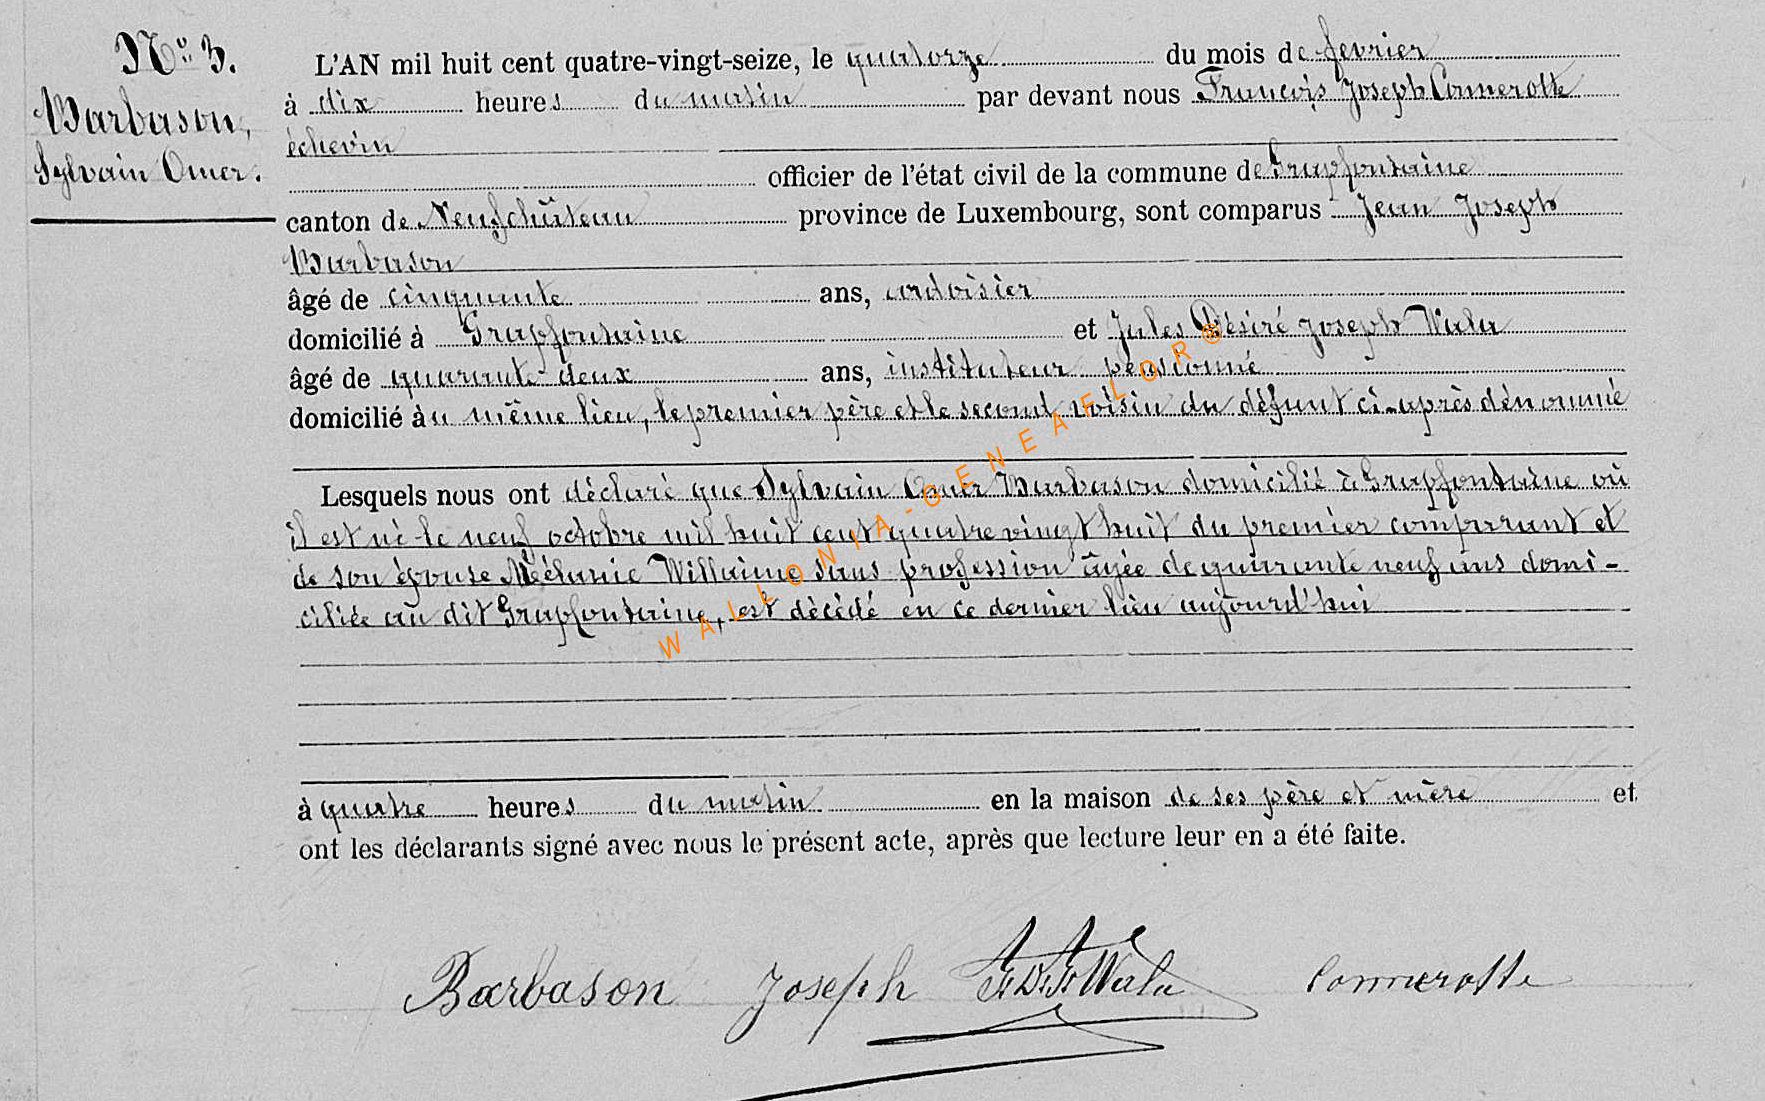 N° 3.
Barbason,
Sylvain Omer.
L'AN mil huit cent quatre-vingt-seize, le quatorze du mois de février
à dix heures du matin par devant nous François Joseph Connerotte
échevin
officier de l'état civil de la commune de Grapfontaine
canton de Neufchâteau province de Luxembourg, sont comparus Jean Joseph
Barbason
âgé de cinquante ans, ardoisier
domicilié à Grapfontaine et Jules Désiré Joseph Wala
âgé de quarante-deux ans, instituteur pensionné
domicilié au même lieu, le premier père et le second voisin du défunt ci-après dénommé
Lesquels nous ont déclaré que Sylvain Omer Barbason domicilié à Grapfontaine où
il est né le neuf octobre mil huit cent quatre vingt huit du premier comparant et
de son épouse Mélanie Willaime sans profession âgée de quarante neuf ans domi-
ciliée au dit Grapfontaine, est décédé en ce dernier lieu aujourd'hui
à quatre heures du matin en la maison de ses père et mère et
ont les déclarants signé avec nous le présent acte, après que lecture leur en a été faite.
Barbason Joseph J. D. J. Wala Connerotte
WALLONIA-GENEAFLOR®